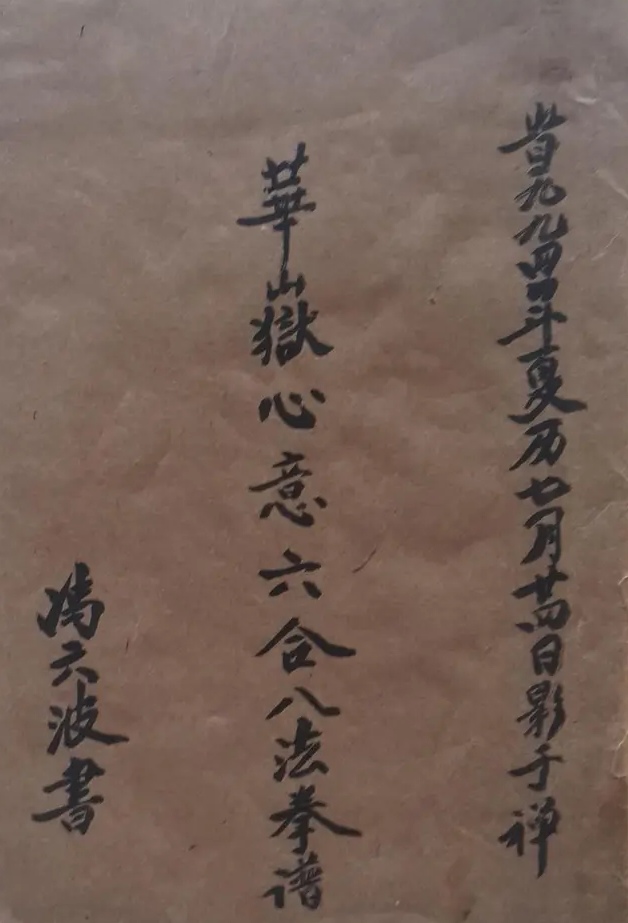 旹一九九四年夏历七月廿四日影于禅
華嶽心意六合八法拳谱
馮六波書